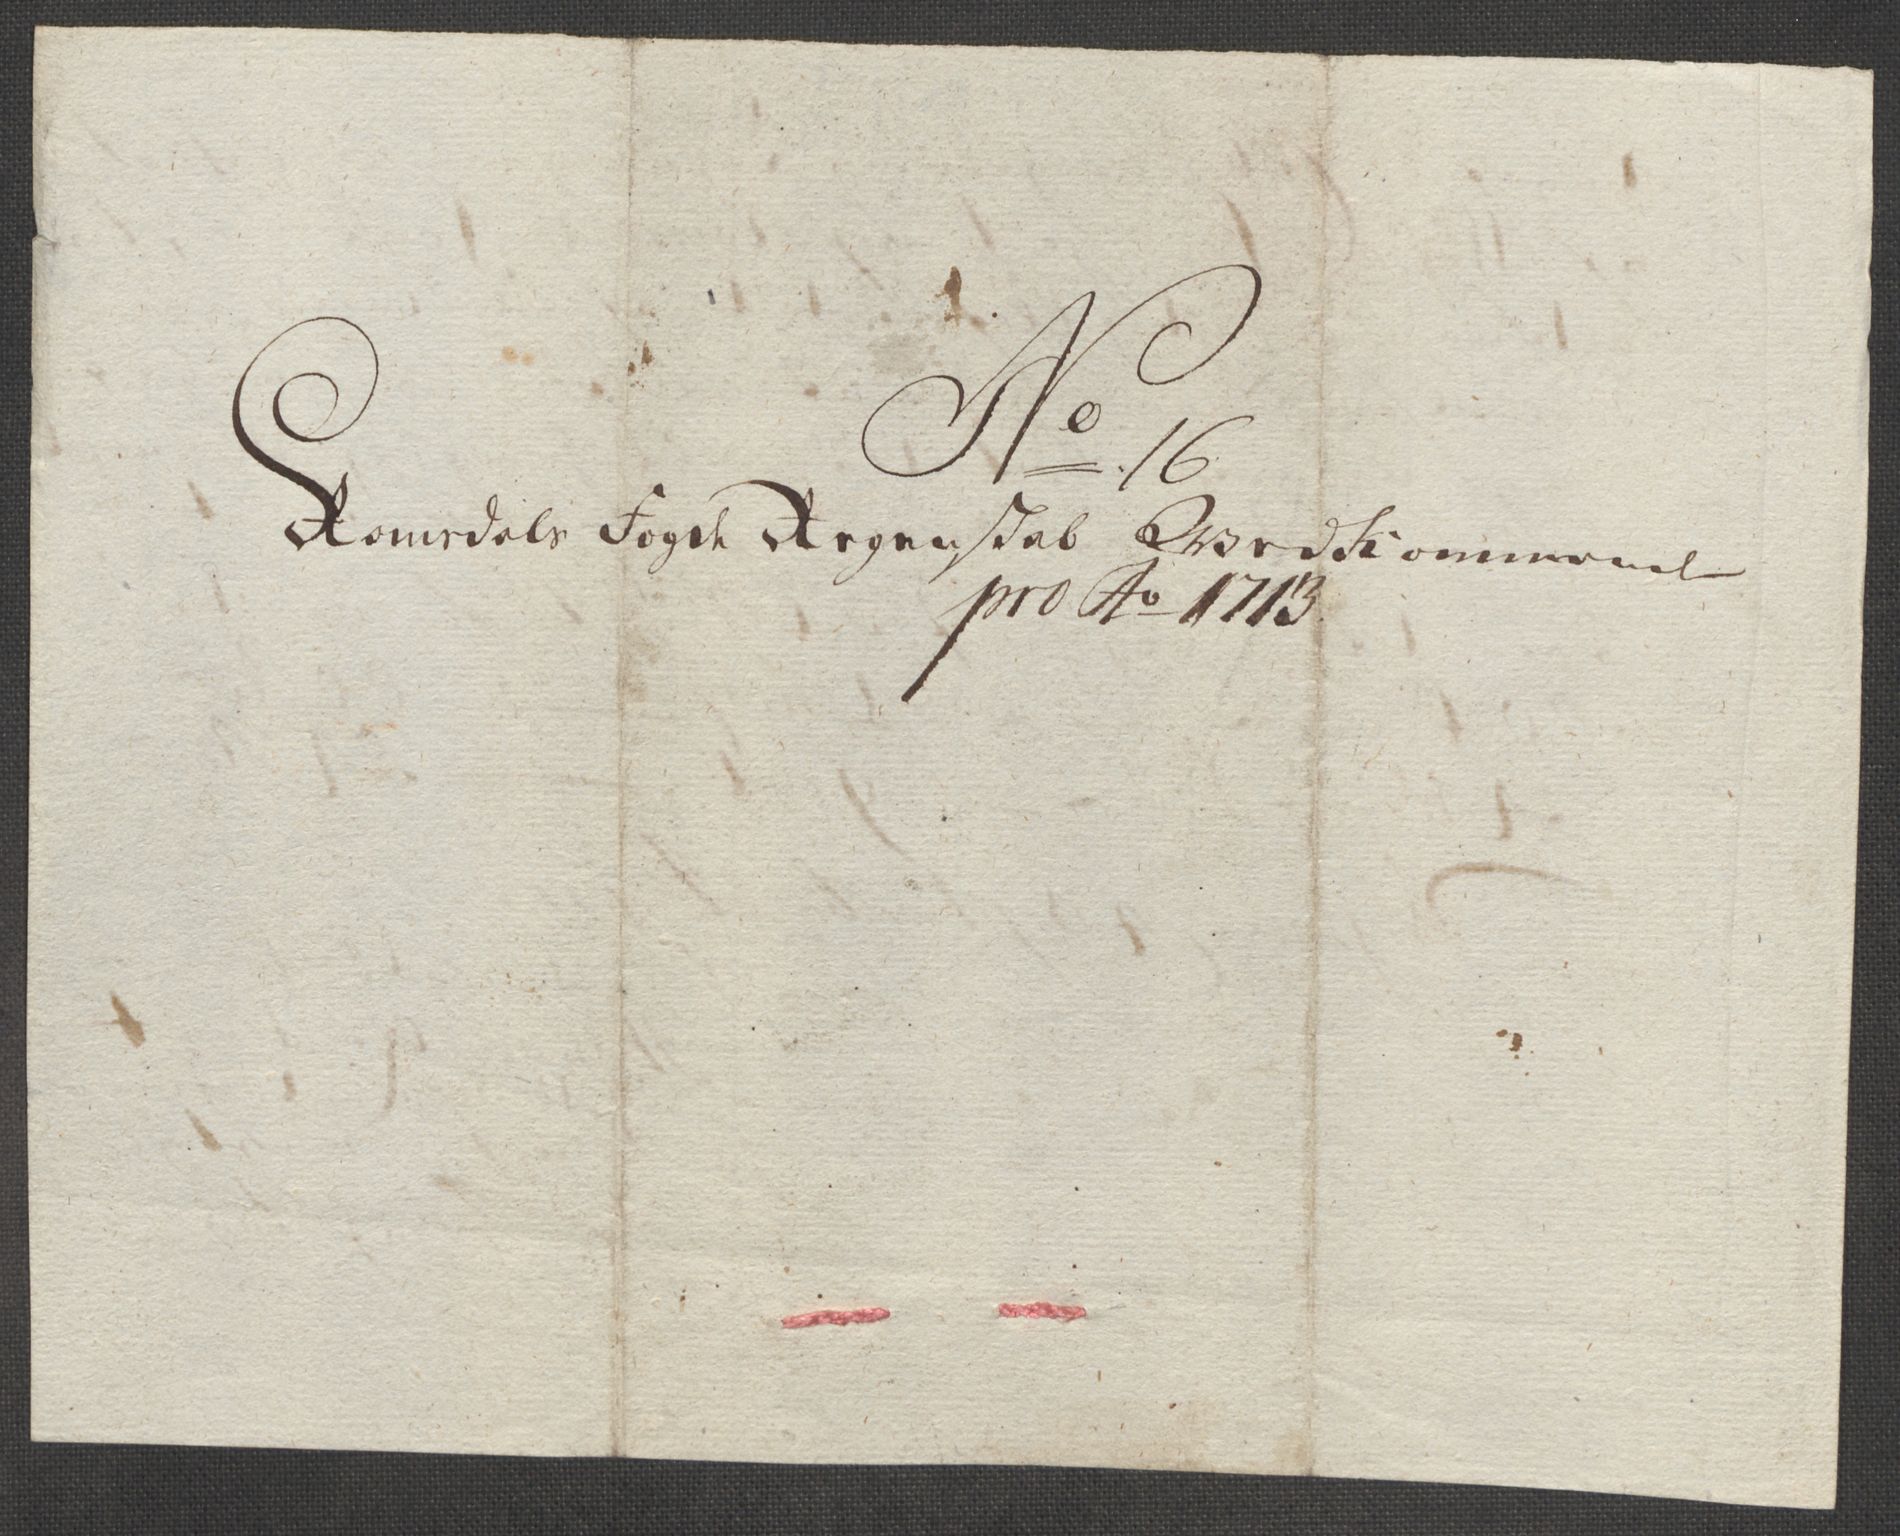 No 16
Romsdals Fogde Regenskab Vedkommend
pro Ao 1713